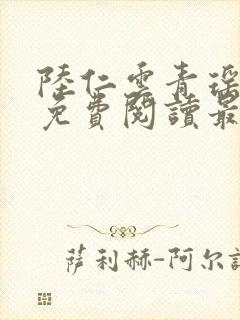 陸仁雲青瑶
免費閱讀最
萨利赫-阿尔